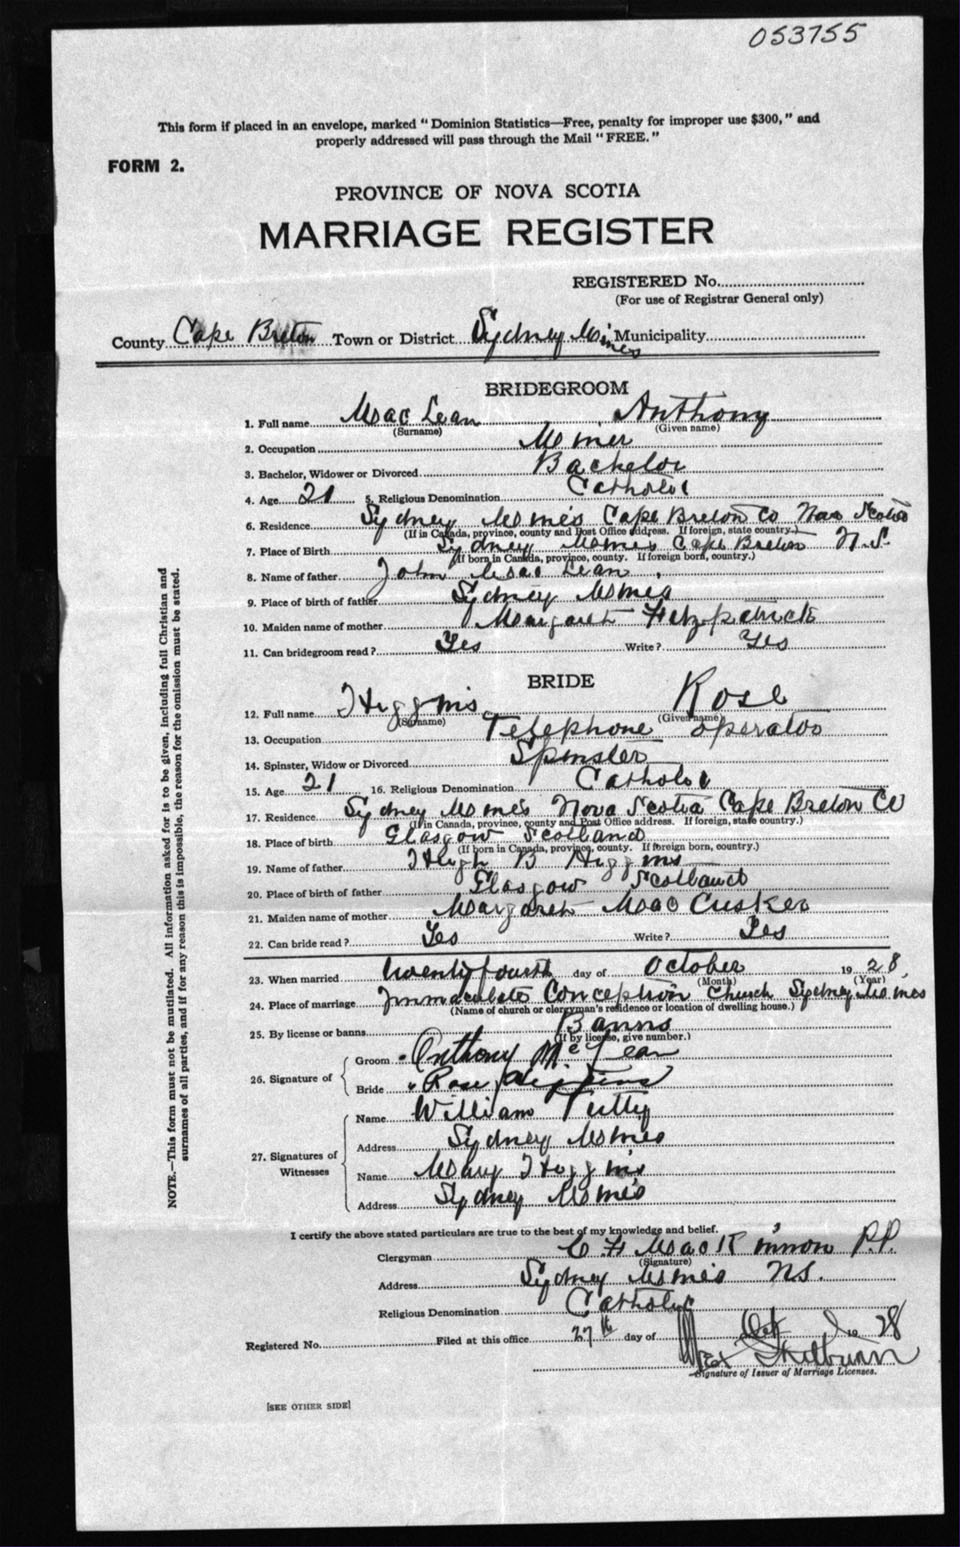 053755
This form if placed in an envelope, marked "Dominion Statistics—Free, penalty for improper use $300," and
properly addressed will pass through the Mail "FREE."
FORM 2.
PROVINCE OF NOVA SCOTIA
MARRIAGE REGISTER
REGISTERED No.
(For use of Registrar General only)
County Cape Breton Town or District Sydney Mines Municipality
BRIDEGROOM
1. Full name Mac Lean Anthony
(Surname) (Given name)
2. Occupation Miner
3. Bachelor, Widower or Divorced Bachelor
4. Age 21 5. Religious Denomination Catholic
6. Residence Sydney Mines Cape Breton Co Nova Scotia
(If in Canada, province, county and Post Office address. If foreign, state country.)
7. Place of Birth Sydney Mines Cape Breton N.S.
(If born in Canada, province, county. If foreign born, country.)
8. Name of father John Mac Lean
9. Place of birth of father Sydney Mines
10. Maiden name of mother Margaret Fitzpatrick
11. Can bridegroom read? Yes Write? Yes
BRIDE
12. Full name Higgins Rose
(Surname) (Given name)
13. Occupation Telephone operator
14. Spinster, Widow or Divorced Spinster
15. Age 21 16. Religious Denomination Catholic
17. Residence Sydney Mines Nova Scotia Cape Breton Co
(If in Canada, province, county and Post Office address. If foreign, state country.)
18. Place of birth Glasgow Scotland
(If born in Canada, province, county. If foreign born, country.)
19. Name of father Hugh B Higgins
20. Place of birth of father Glasgow Scotland
21. Maiden name of mother Margaret Mac Cusker
22. Can bride read? Yes Write? Yes
23. When married twenty fourth day of October 19 28,
(Month) (Year)
24. Place of marriage Immaculate Conception Church Sydney Mines
(Name of church or clergyman's residence or location of dwelling house.)
25. By license or banns Banns
(If by license, give number.)
26. Signature of Groom Anthony McLean
Bride Rose Higgins
27. Signatures of Witnesses Name William Tutty
Address Sydney Mines
Name Mary Higgins
Address Sydney Mines
I certify the above stated particulars are true to the best of my knowledge and belief.
Clergyman C F MacKinnon P.P.
(Signature)
Address Sydney Mines N.S.
Religious Denomination Catholic
Registered No. Filed at this office 27th day of Oct 19 28
Signature of Issuer of Marriage Licenses.
[SEE OTHER SIDE]
NOTE.—This form must not be mutilated. All information asked for is to be given, including full Christian and
surnames of all parties, and if for any reason this is impossible, the reason for the omission must be stated.